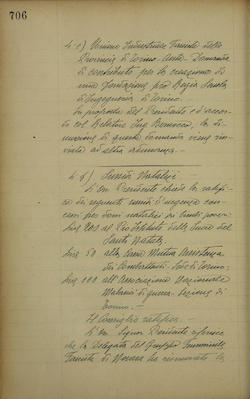 706
4 e) Unione Industriale Fascista della
Provincia di Torino - Domanda
di contributo per la creazione di
una fondazione pro Regia Scuola
d'Ingegneria di Torino.
Su proposta del Presidente ed accor-
do col Relatore Ing. la di-
scussione di questa domanda viene rin-
viata ad altra adunanza.
4 f) Sussidi Natalizi
L'On Presidente chiede la ratifica
dei seguenti sussidi d'urgenza con-
cessi per doni natalizi ai bimbi poveri
Lire 200 al Pio Istituto delle Suore del
Santo Natale,
Lire 50 alla Mutua Assistenza
dei Combattenti -
Lire 100 all'Associazione Nazionale
Mutilati di guerra - Sezione di
Il Consiglio ratifica.
L'On Signor Presidente riferisce
che la Delegata del Gruppo Femminile
Fascista di Novara ha rinnovato la